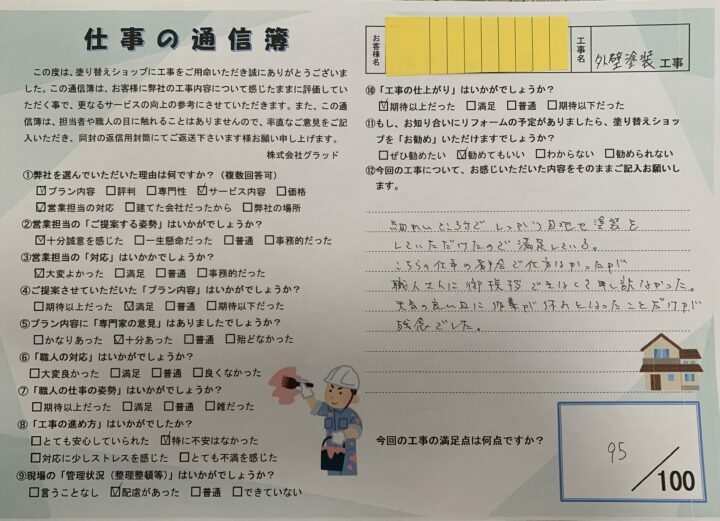 仕事の通信簿
この度は、塗り替えショップに工事をご用命いただき誠にありがとうございま
した。この通信簿は、お客様に弊社の工事内容について感じたままに評価してい
ただく事で、更なるサービスの向上の参考にさせていただきます。また、この
通信簿は、担当者や職人の目に触れることはありませんので、率直なご意見をご記
入いただき、同封の返信用封筒にてご返送下さいます様お願い申し上げます。
株式会社グラッド
①弊社を選んでいただいた理由は何ですか？（複数回答可）
☑プラン内容 □評判 □専門性 ☑サービス内容 □価格
☑営業担当の対応 □建てた会社だったから □弊社の場所
②営業担当の「ご提案する姿勢」はいかがでしょうか？
☑十分誠意を感じた □一生懸命だった □普通 □事務的だった
③営業担当の「対応」はいかかでしょうか？
☑大変よかった □満足 □普通 □事務的だった
④ご提案させていただいた「プラン内容」はいかがでしょうか？
□期待以上だった ☑満足 □普通 □期待以下だった
⑤プラン内容に「専門家の意見」はありましたでしょうか？
□かなりあった ☑十分あった □普通 □殆どなかった
⑥「職人の対応」はいかがでしょうか？
□大変良かった □満足 □普通 □良くなかった
⑦「職人の仕事の姿勢」はいかがでしょうか？
□期待以上だった □満足 □普通 □雑だった
⑧「工事の進め方」はいかがでしたか？
□とても安心していられた ☑特に不安はなかった
□対応に少しストレスを感じた □とても不満を感じた
⑨現場の「管理状況（整理整頓等）」はいかがでしょうか？
□言うことなし ☑配慮があった □普通 □できていない
お客様名
工事名
外壁塗装工事
⑩「工事の仕上がり」はいかがでしょうか？
☑期待以上だった □満足 □普通 □期待以下だった
⑪もし、お知り合いにリフォームの予定がありましたら、塗り替えショッ
プを「お勧め」いただけますでしょうか？
□ぜひ勧めたい ☑勧めてもいい □わからない □勧められない
⑫今回の工事について、お感じいただいた内容をそのままご記入お願いし
ます。
細かいところまで しっかり 塗装を
していただけたので満足している。
こちらの仕事の都合で仕方なかったが
職人さんに御挨拶できなくて申し訳なかった。
天気の良い日に作業が休みとなったことだけが
残念でした。
今回の工事の満足点は何点ですか？
95/100